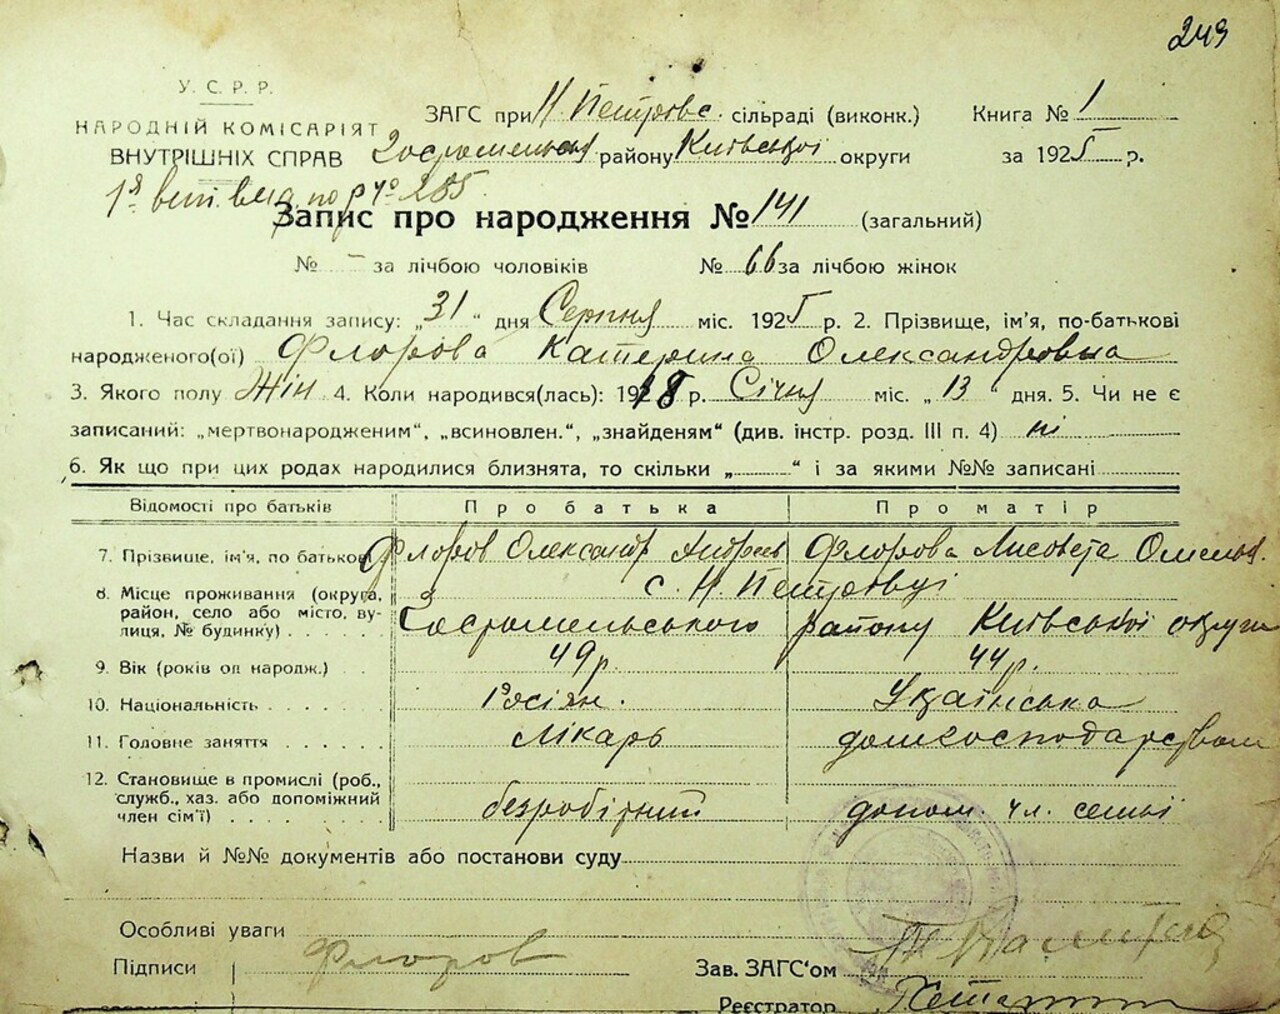 249
У. С. Р. Р.
НАРОДНІЙ КОМІСАРІЯТ
ВНУТРІШНІХ СПРАВ
ЗАГС при Н. Петрівс. сільраді (виконк.) Книга № 1
Гостомельськ району Київської округи за 1925 р.
Запис про народження № 141 (загальний)
№ – за лічбою чоловіків № 66 за лічбою жінок
1. Час складання запису: „31“ дня Серпня міс. 1925 р. 2. Прізвище, ім'я, по-батькові
народженого(ої) Флорова Катерина Олександровна
3. Якого полу Жін 4. Коли народився(лась): 1918 р. Січня міс. „13“ дня. 5. Чи не є
записаний: „мертвонародженим“, „всиновлен.“, „знайденям“ (див. інстр. розд. III п. 4) ні
6. Як що при цих родах народилися близнята, то скільки „ “ і за якими №№ записані
Відомості про батьків Про батька Про матір
7. Прізвище, ім'я, по батькові Флоров Олександр Андреев Флорова Лисовета Омельк.
8. Місце проживання (округа, с. Н. Петрівці
район, село або місто, ву- Гостомельського району Київської округи
лиця, № будинку)
9. Вік (років од народж.) 49 р. 44 р.
10. Національність Росіян. Українська
11. Головне заняття лікарь домгосподарством
12. Становище в промислі (роб.,
служб., хаз. або допоміжний безробітний допом. чл. семьі
член сім'ї)
Назви й №№ документів або постанови суду
Особливі уваги
Підписи Флоров Зав. ЗАГС'ом
Реєстратор